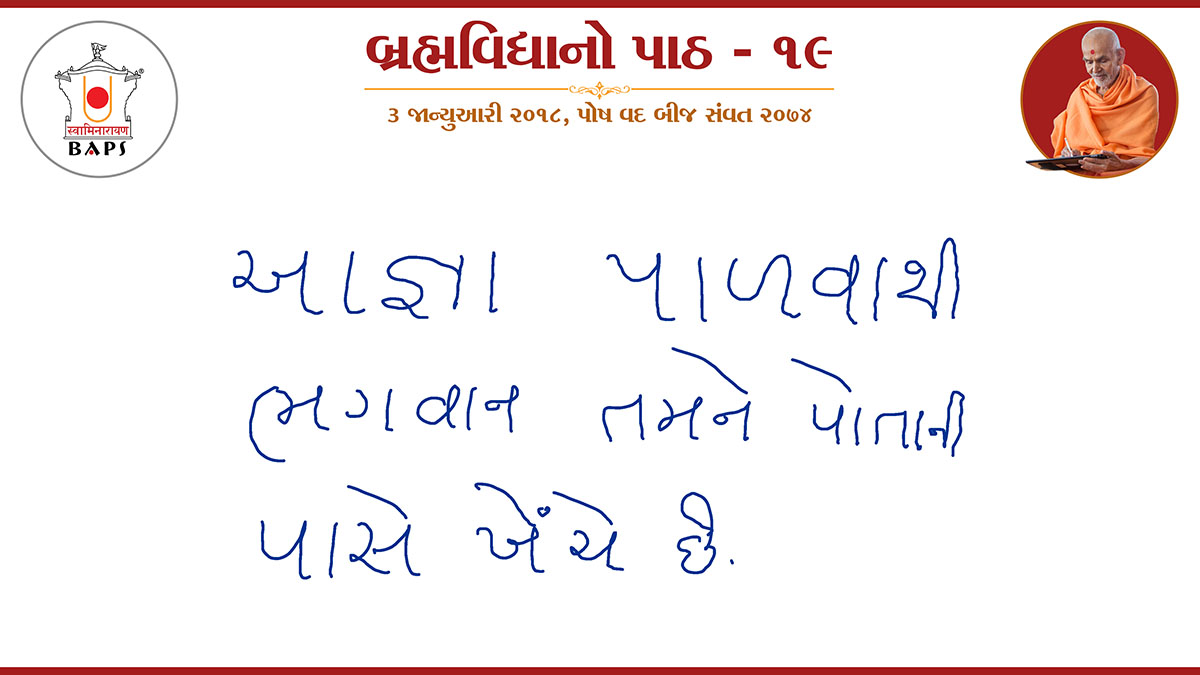 બ્રહ્મવિદ્યાનો પાઠ - ૧૯
૩ જાન્યુઆરી ૨૦૧૮, પોષ વદ બીજ સંવત ૨૦૭૪
स्वामिनारायण
BAPS
આજ્ઞા પાળવાથી
ભગવાન તમને પોતાની
પાસે ખેંચે છે.